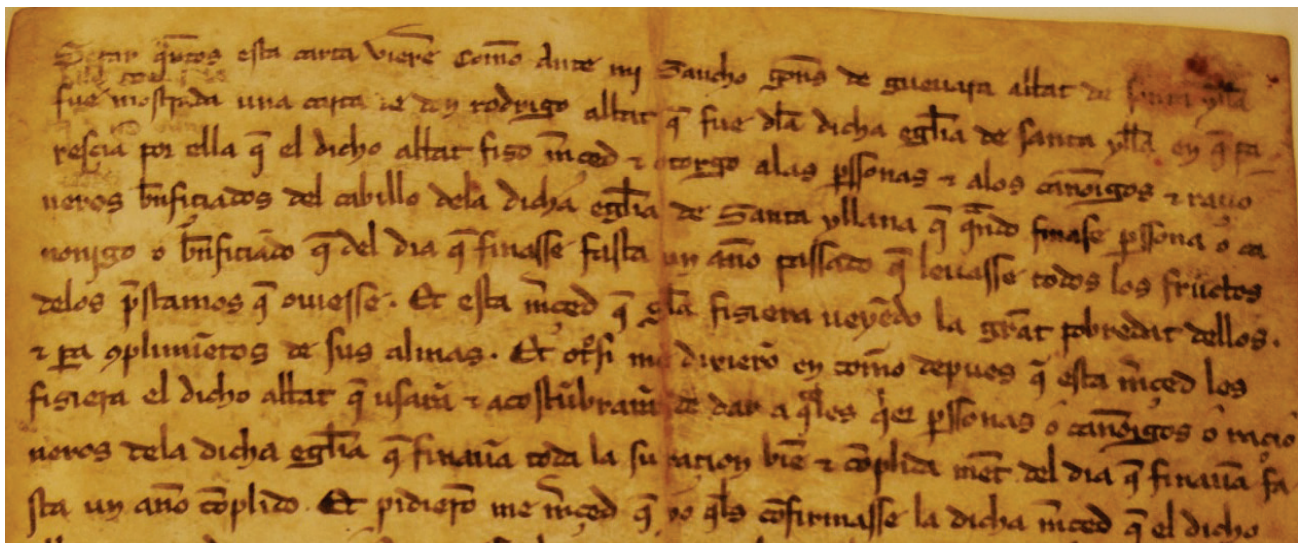 Sepan qntos esta carta viere Como Ante mi Sancho gons de gueuara abbat de santa yllā
fue mostrada una carta de don rodrigo abbat q̄ fue dla dicha eglia de santa yllā en q̄ pa
resçia por ella q̄ el dicho abbat fiso mçed τ otorgo alas pssonas τ alos canoigos τ raçio
neros bnfiçiados del cabillo dela dicha eglia de Santa yllana q̄ qndo finase pssona o ca
nonigo o bnfiçiado q̄ del dia q̄ finasse fasta un año passado q̄ leuasse todos los fructos
delos pstamos q̄ ouiesse. Et esta mçed q̄ gela fisiera ueyedo la grat pobredat dellos.
τ pa qplimietos de sus almas. Et otsi me dixiero en como depues q̄ esta mçed les
fisiera el dicho abbat q̄ usarā τ acostubrarā de dar a qles qer pssonas o canoigos o raçio
neros dela dicha eglia q̄ finauā toda la su raçion bie τ coplida met del dia q̄ finauā fa
sta un año coplido. Et pidiero me mçed q̄ yo qles cofirmasse la dicha mçed q̄ el dicho